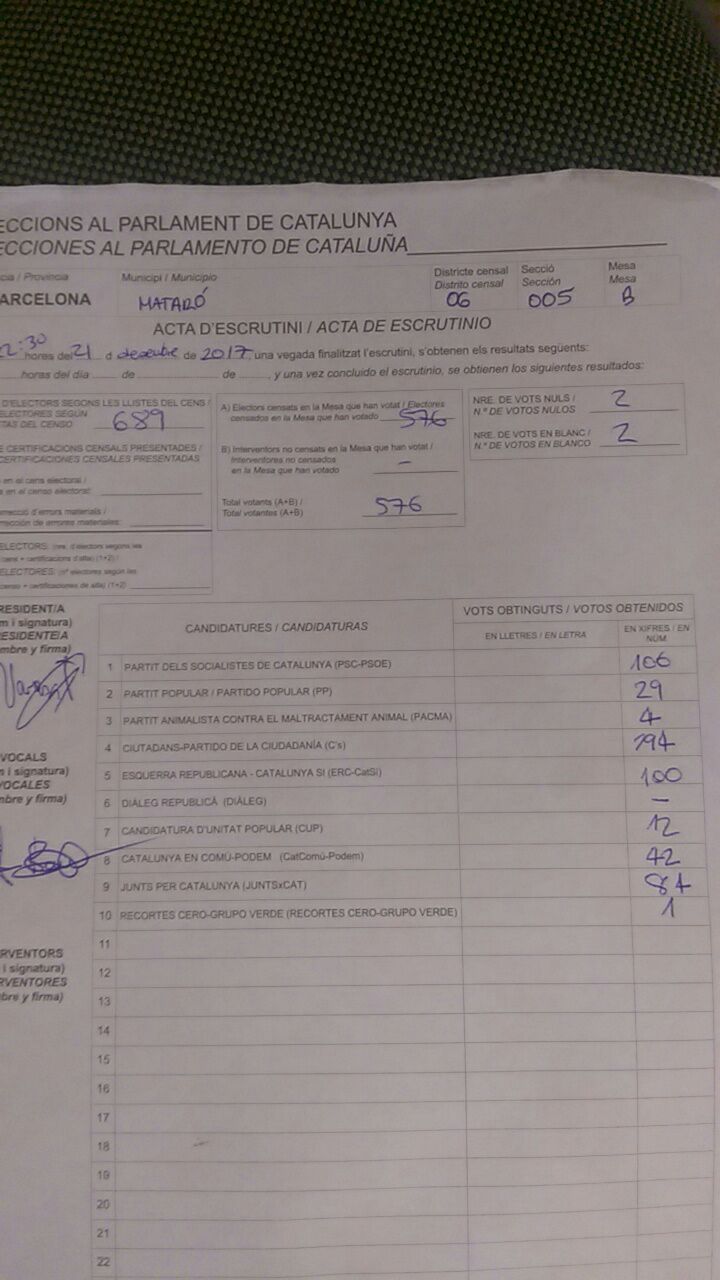 ECCIONS AL PARLAMENT DE CATALUNYA
ECCIONES AL PARLAMENTO DE CATALUÑA
cia / Provincia Municipi / Municipio Districte censal Secció Mesa
Distrito censal Sección Mesa
ARCELONA MATARÓ 06 005 B
ACTA D'ESCRUTINI / ACTA DE ESCRUTINIO
2:30 hores del 21 d desembre de 2017, una vegada finalitzat l'escrutini, s'obtenen els resultats següents:
horas del día de de , y una vez concluido el escrutinio, se obtienen los siguientes resultados:
D'ELECTORS SEGONS LES LLISTES DEL CENS /
ELECTORES SEGÚN
TAS DEL CENSO 689
E CERTIFICACIONS CENSALS PRESENTADES /
CERTIFICACIONES CENSALES PRESENTADAS
en el cens electoral /
s en el censo electoral:
rrecció d'errors materials /
rrección de errores materiales:
ELECTORS: (nre. d'electors segons les
cens + certificacions d'alta) (1+2) /
ELECTORES: (nº electores según las
censo + certificaciones de alta) (1+2)
A) Electors censats en la Mesa que han votat / Electores
censados en la Mesa que han votado 576
B) Interventors no censats en la Mesa que han votat /
Interventores no censados
en la Mesa que han votado –
Total votants (A+B) /
Total votantes (A+B) 576
NRE. DE VOTS NULS /
N.º DE VOTOS NULOS 2
NRE. DE VOTS EN BLANC /
N.º DE VOTOS EN BLANCO 2
RESIDENT/A
m i signatura)
RESIDENTE/A
mbre y firma)
VOCALS
m i signatura)
VOCALES
mbre y firma)
ERVENTORS
i signatura)
RVENTORES
bre y firma)
CANDIDATURES / CANDIDATURAS VOTS OBTINGUTS / VOTOS OBTENIDOS
EN LLETRES / EN LETRA EN XIFRES / EN NÚM.
1 PARTIT DELS SOCIALISTES DE CATALUNYA (PSC-PSOE) 106
2 PARTIT POPULAR / PARTIDO POPULAR (PP) 29
3 PARTIT ANIMALISTA CONTRA EL MALTRACTAMENT ANIMAL (PACMA) 4
4 CIUTADANS-PARTIDO DE LA CIUDADANÍA (C's) 194
5 ESQUERRA REPUBLICANA - CATALUNYA SI (ERC-CatSí) 100
6 DIÀLEG REPUBLICÀ (DIÀLEG) –
7 CANDIDATURA D'UNITAT POPULAR (CUP) 12
8 CATALUNYA EN COMÚ-PODEM (CatComú-Podem) 42
9 JUNTS PER CATALUNYA (JUNTSxCAT) 84
10 RECORTES CERO-GRUPO VERDE (RECORTES CERO-GRUPO VERDE) 1
11
12
13
14
15
16
17
18
19
20
21
22